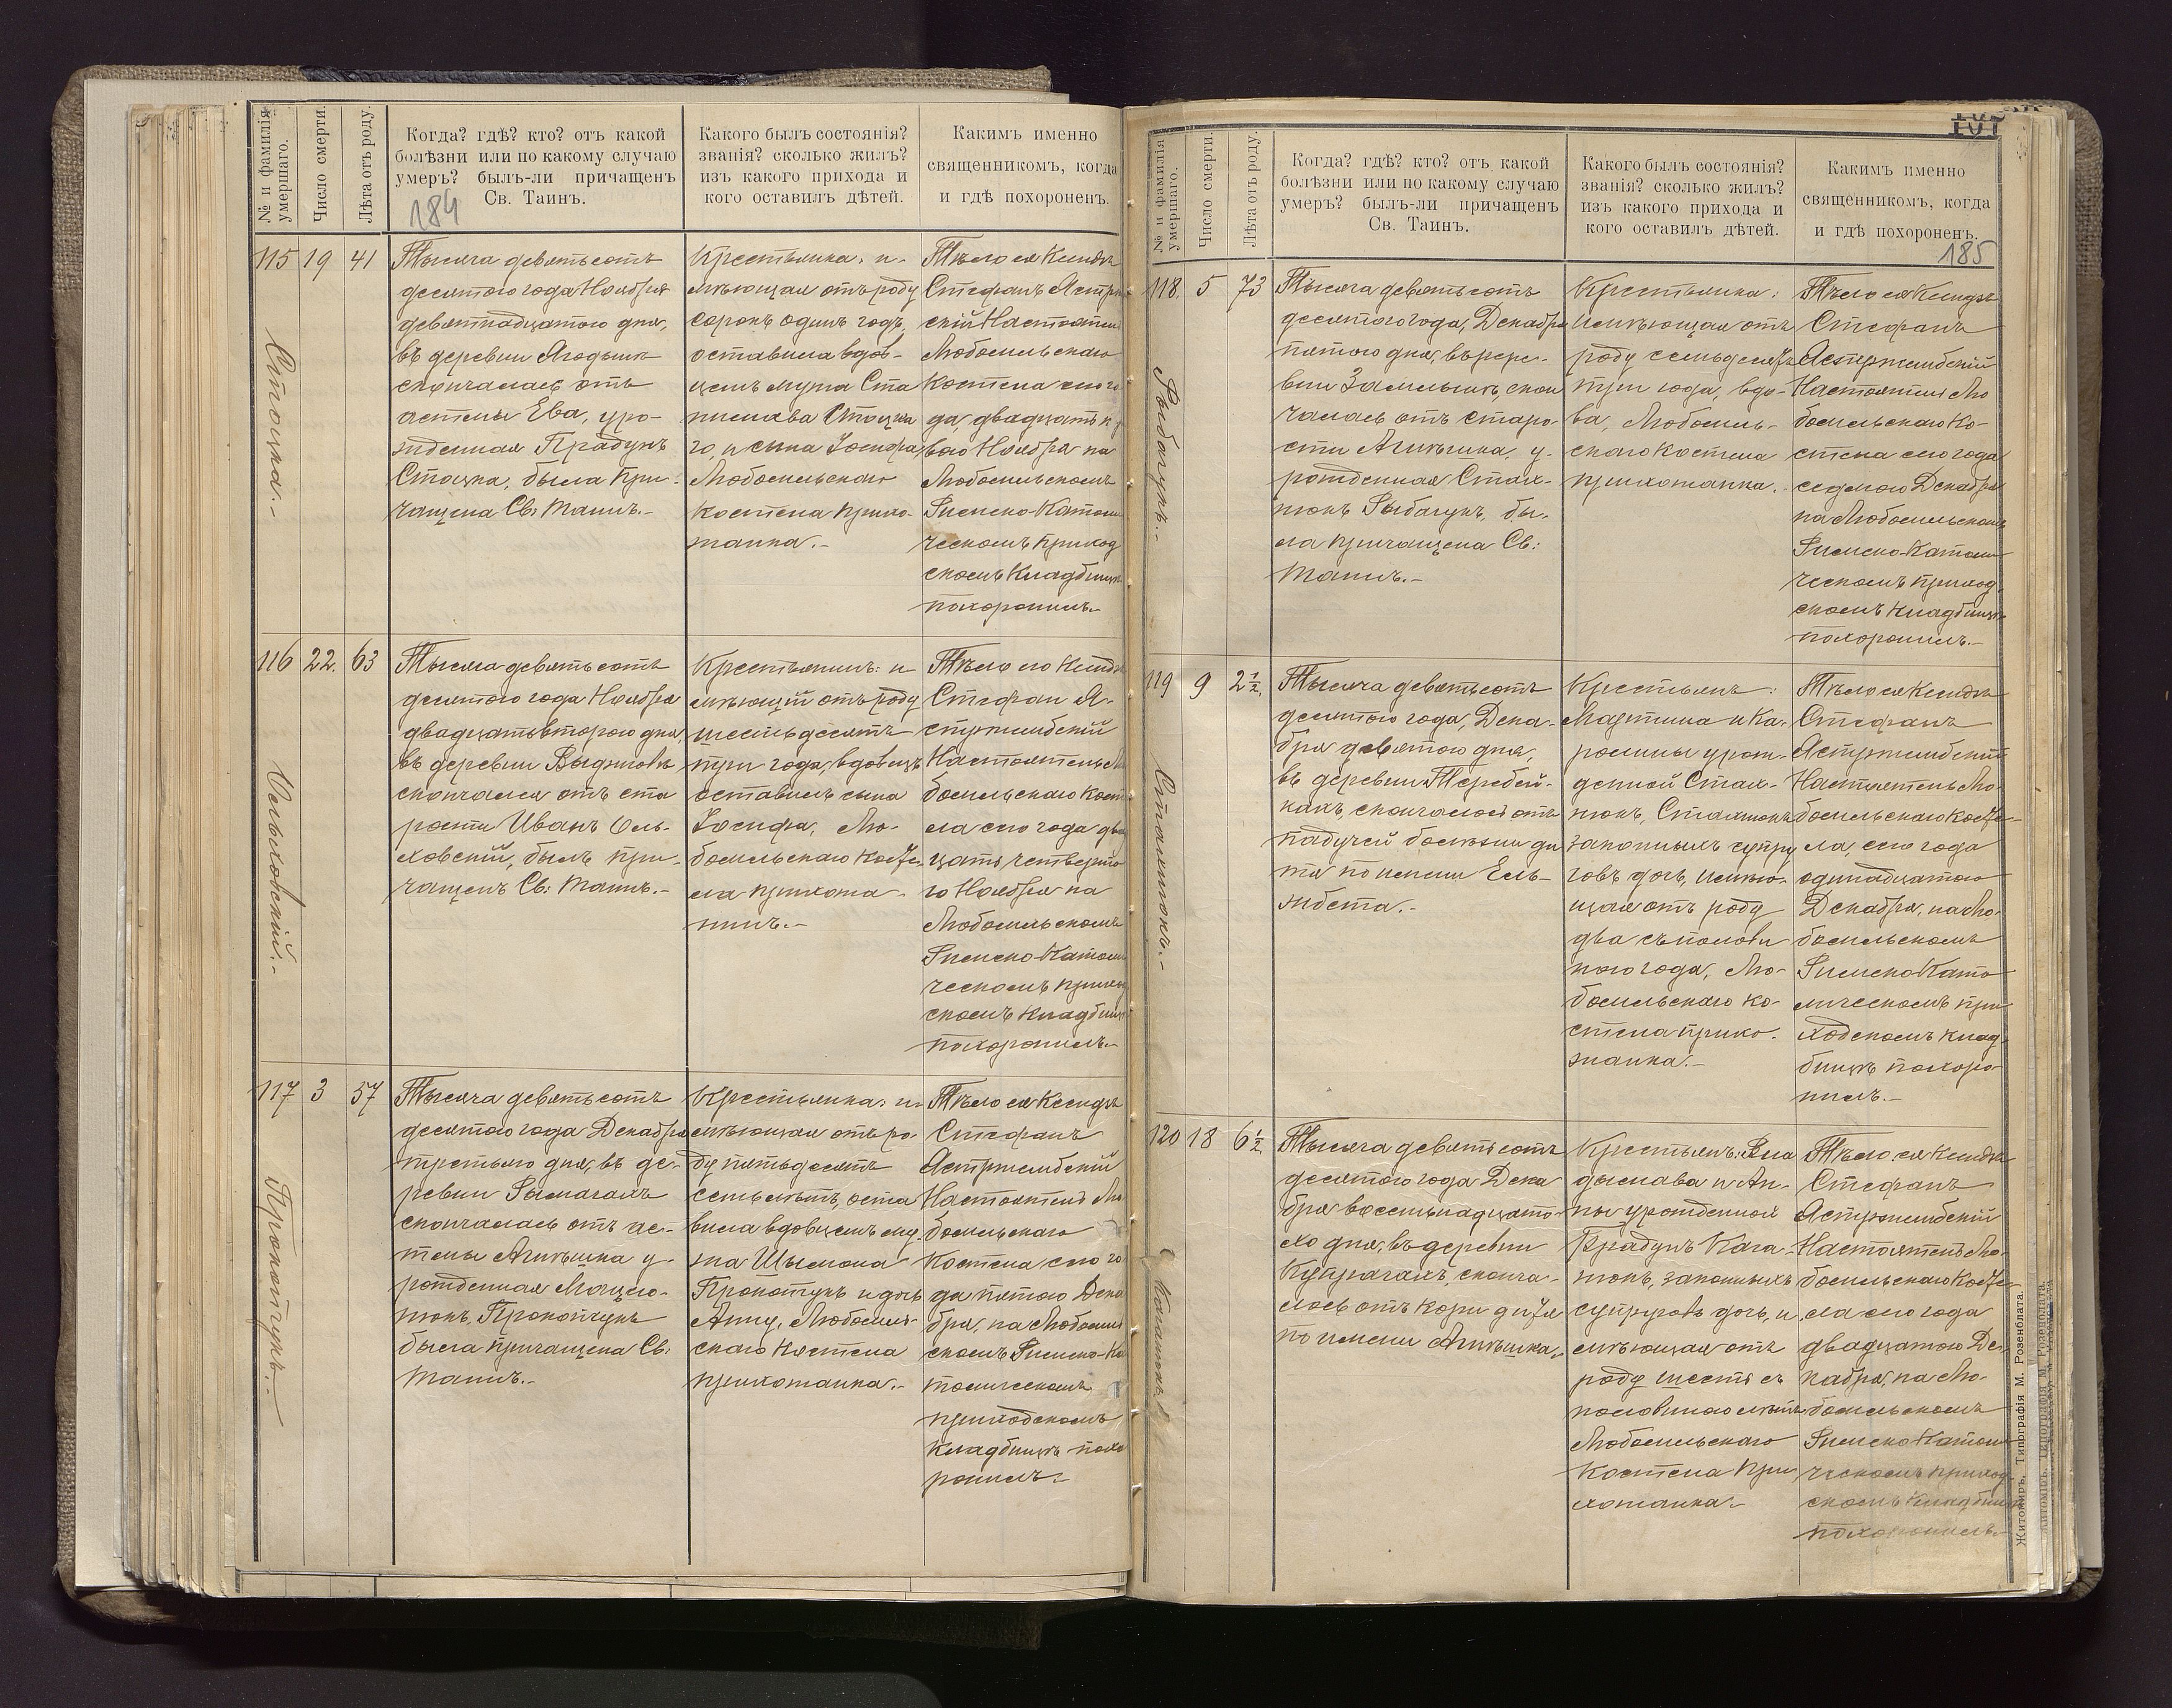 № и фамилія умершаго.
Число смерти.
Лѣта отъ роду.
Когда? гдѣ? кто? отъ какой
болѣзни или по какому случаю
умеръ? былъ-ли причащенъ
Св. Таинъ.
184
Какого былъ состоянія?
званія? сколько жилъ?
изъ какого прихода и
кого оставилъ дѣтей.
Какимъ именно
священникомъ, когда
и гдѣ похороненъ.
115
Стоцка.-
19
41
Тысяча девятьсотъ
десятого года Ноября
девятнадцатого дня,
въ деревни Ягодынѣ
скончалась отъ
астмы Ева, уро-
жденная Прадунъ
Стоцка, была при-
чащена Св: Таинъ.-
Крестьянка: и-
мѣющая отъ роду
сорокъ одинъ годъ,
оставила вдов-
цемъ мужа Ста
нислава Стоцка
го, и сына Іосифа
Любомльскаго
костела прихо-
жанка.-
Тѣло ея Ксендзъ
Стефанъ Астрж
скій Настоятел
Любомльскаго
костела сего го
да, двадцать п
ваго Ноября на
Любомльскомъ
Римско-Католи
ческомъ приход
скомъ кладбищѣ
похоронилъ.-
116
Ольховскій.-
22.
63
Тысяча девятьсотъ
десятого года Ноября
двадцать второго дня,
въ деревни
скончался отъ ста
рости Иванъ Оль-
ховскій, былъ при-
чащенъ Св: Таинъ.-
Крестьянинъ: и
мѣющій отъ роду
шестьдесятъ
три года, вдовецъ
оставилъ сына
Іосифа, Лю-
бомльскаго косте-
ла прихожа-
нинъ.-
Тѣло его Ксендз
Стефан А-
стржембскій
Настоятель Лю
бомльскаго Кост
ла сего года два
цать четверто
го Ноября на
Любомльскомъ
Римско-Католи
ческомъ приход
скомъ кладбищ
похоронилъ.-
117
Прокопчукъ.-
3
57
Тысяча девятьсотъ
десятого года Декабря
третьяго дня, въ де-
ревни Рымачахъ
скончалась отъ ас-
тмы Агнѣшка у-
рожденная
Прокопчукъ
была причащена Св:
Таинъ.-
Крестьянка: и-
мѣющая отъ ро-
ду пятьдесятъ
семь лѣтъ, оста
вила вдовцемъ му-
жа Шымона
Прокопчукъ и дочь
Анну, Любомль-
скаго костела
прихожанка.-
Тѣло ея Ксендзъ
Стефанъ
Астржембскій
Настоятель Лю
бомльскаго
костела сего го
да пятого Дека
бря, на Любомль
скомъ Римско-Ка
толическомъ
приходскомъ
кладбищѣ похо
ронилъ.-
№ и фамилія умершаго.
Число смерти.
Лѣта отъ роду.
Когда? гдѣ? кто? отъ какой
болѣзни или по какому случаю
умеръ? былъ-ли причащенъ
Св. Таинъ.
Какого былъ состоянія?
званія? сколько жилъ?
изъ какого прихода и
кого оставилъ дѣтей.
Какимъ именно
священникомъ, когда
и гдѣ похороненъ.
185
118.
Рыбачукъ.-
5
73
Тысяча девятьсотъ
десятого года, Декабря
пятого дня, въ дере-
вни Замлынѣ, скон
чалась отъ старо-
сти Агнѣшка, у-
рожденная Стах-
нюкъ Рыбачукъ, бы-
ла причащена Св:
Таинъ.-
Крестьянка:
имѣющая отъ
роду семьдесятъ
три года, вдо-
ва, Любомль-
скаго костела
прихожанка.-
Тѣло ея Ксендзъ
Стефанъ
Астржембскій
Настоятель Лю
бомльскаго Ко-
стела сего года
седмого Декабря
на Любомльскомъ
Римско-Католи
ческомъ приход
скомъ кладбищѣ
похоронилъ.-
119
Стахнюкъ.-
9
2½.
Тысяча девятьсотъ
десятого года, Дека-
бря девятого дня,
въ деревни Теребей-
кахъ, скончалось отъ
падучей болѣзни ди
тя по имени Ель-
жбета.-
Крестьянъ:
Мартина и Ка-
ролины урож-
денной Стах-
нюкъ, Стахнюкъ
законныхъ супру
говъ дочь, имѣю-
щая отъ роду
два съ полови
ною года, Лю-
бомльскаго ко-
стела прихо-
жанка.-
Тѣло ея Ксендзъ
Стефанъ
Астржембскій
Настоятель Лю-
бомльскаго косте-
ла, сего года
одинадцатого
Декабря, на Лю-
бомльскомъ
Римско Като
лическомъ при
ходскомъ клад-
бищѣ похоро-
нилъ.-
120
18
6½.
Тысяча девятьсотъ
десятого года Дека
бря восемьнадцато-
го дня, въ деревни
Купрачахъ, сконча-
лось отъ кори дитя
по имени Агнѣшка.-
Крестьянъ: Вла
дыслава и Ан-
ны урожденной
Прадунъ
законныхъ
супруговъ дочь, и
мѣющая отъ
роду шесть съ
половиною лѣтъ
Любомльскаго
костела при
хожанка.-
Тѣло ея Ксендзъ
Стефанъ
Астржембскій
Настоятель Лю-
бомльскаго косте-
ла сего года
двадцатого Де-
кабря, на Лю-
бомльскомъ
Римско Католи
ческомъ приход
скомъ кладбищѣ
похоронилъ.-
Житомиръ. Типографія М. Розенблата.